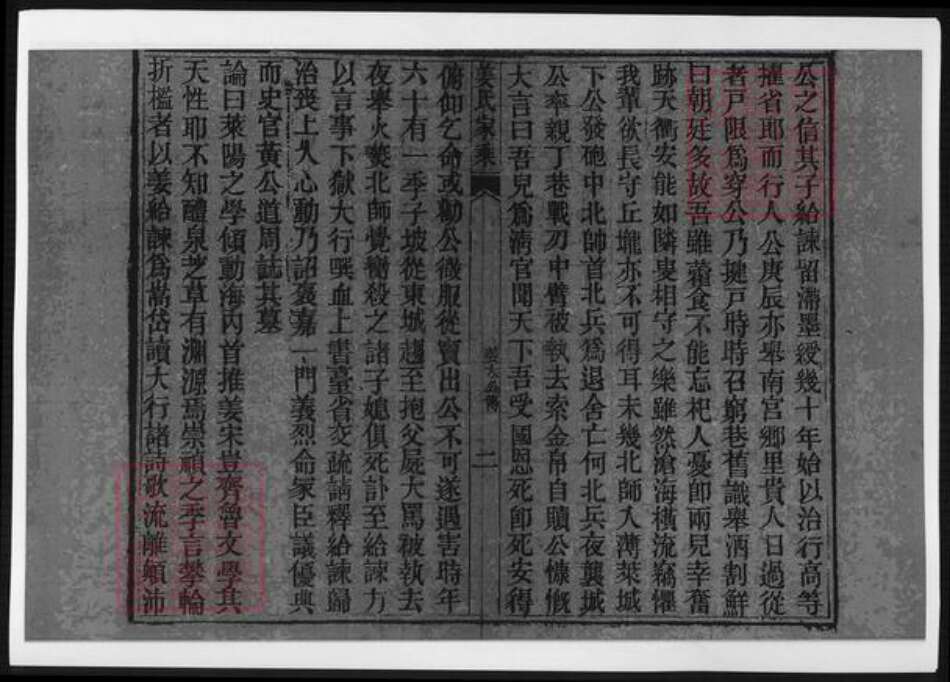 公之信其子給諫留滯墨綬幾十年始以治行高等
擢省郎而行人公庚辰亦舉南宮鄉里貴人日過從
者戶限為穿公乃揵戶時時召窮巷舊識舉酒割鮮
曰朝廷多故吾雖藿食不能忘杞人憂卽兩兒幸奮
跡天衢安能如隣叟相守之樂雖然滄海橫流竊懼
我輩欲長守丘壠亦不可得耳未幾北師入薄萊城
下公發砲中北帥首北兵為退舍亡何北兵夜襲城
公率親丁巷戰刃中臂被執去索金帛自贖公慷慨
大言曰吾兒為清官聞天下吾受國恩死卽死安得
姜氏家乘
二
俯仰乞命或勸公微服從竇出公不可遂遇害時年
六十有一季子坡從東城趨至抱父屍大罵被執去
夜舉火爇北師覺衡殺之諸子媳俱死訃至給諫方
以言事下獄大行噀血上書臺省交疏請釋給諫歸
治喪上人心動乃詔褒嘉一門義烈命冢臣議優典
而史官黃公道周誌其墓
論曰萊陽之學傾動海內首推姜宋豈齊魯文學其
天性耶不知醴泉芝草有淵源焉崇禎之季言攀輪
折檻者以姜給諫為嵩岱讀大行諸詩歌流離顛沛